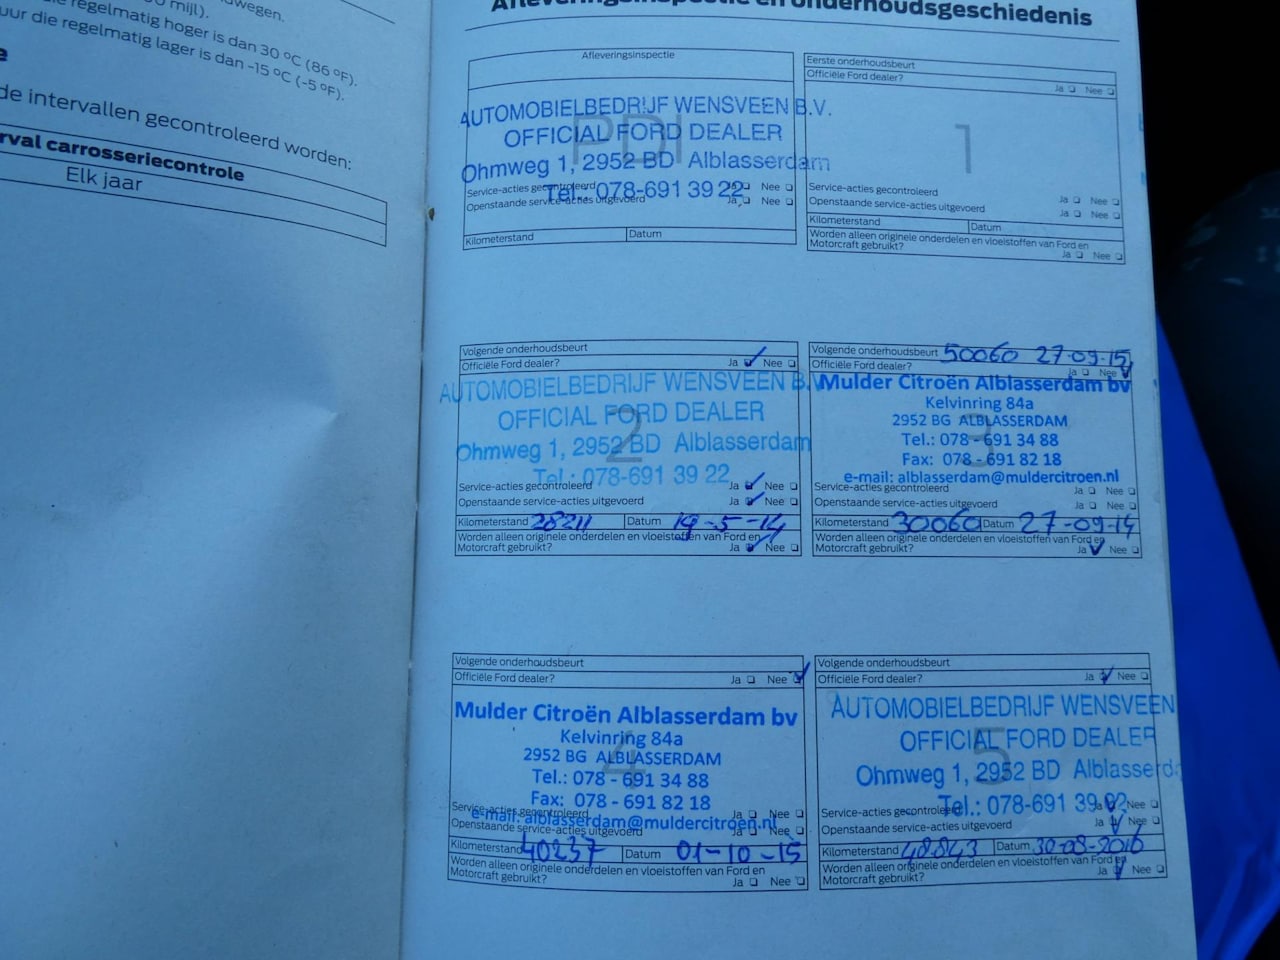 mijl).
regelmatig hoger is dan 30 °C (86 °F).
uur die regelmatig lager is dan -15 °C (-5 °F).
de intervallen gecontroleerd worden:
rval carrosseriecontrole
Elk jaar
Afleveringsinspectie en onderhoudsgeschiedenis
Afleveringsinspectie
PDI
AUTOMOBIELBEDRIJF WENSVEEN B.V.
OFFICIAL FORD DEALER
Ohmweg 1, 2952 BD Alblasserdam
Tel.: 078-691 39 22
Service-acties gecontroleerd Ja Nee
Openstaande service-acties uitgevoerd Ja Nee
Kilometerstand Datum
Eerste onderhoudsbeurt
Officiële Ford dealer?
Ja Nee
1
Service-acties gecontroleerd Ja Nee
Openstaande service-acties uitgevoerd Ja Nee
Kilometerstand Datum
Worden alleen originele onderdelen en vloeistoffen van Ford en
Motorcraft gebruikt? Ja Nee
Volgende onderhoudsbeurt
Officiële Ford dealer? Ja Nee
2
AUTOMOBIELBEDRIJF WENSVEEN B.V.
OFFICIAL FORD DEALER
Ohmweg 1, 2952 BD Alblasserdam
Tel.: 078-691 39 22
Service-acties gecontroleerd Ja Nee
Openstaande service-acties uitgevoerd Ja Nee
Kilometerstand 28211 Datum 19-5-14
Worden alleen originele onderdelen en vloeistoffen van Ford en
Motorcraft gebruikt? Ja Nee
Volgende onderhoudsbeurt 50060 27-09-15
Officiële Ford dealer? Ja Nee
3
Mulder Citroën Alblasserdam bv
Kelvinring 84a
2952 BG ALBLASSERDAM
Tel.: 078 - 691 34 88
Fax: 078 - 691 82 18
e-mail: alblasserdam@muldercitroen.nl
Service-acties gecontroleerd Ja Nee
Openstaande service-acties uitgevoerd Ja Nee
Kilometerstand 30060 Datum 27-09-14
Worden alleen originele onderdelen en vloeistoffen van Ford en
Motorcraft gebruikt? Ja Nee
Volgende onderhoudsbeurt
Officiële Ford dealer? Ja Nee
4
Mulder Citroën Alblasserdam bv
Kelvinring 84a
2952 BG ALBLASSERDAM
Tel.: 078 - 691 34 88
Fax: 078 - 691 82 18
e-mail: alblasserdam@muldercitroen.nl
Service-acties gecontroleerd Ja Nee
Openstaande service-acties uitgevoerd Ja Nee
Kilometerstand 40237 Datum 01-10-15
Worden alleen originele onderdelen en vloeistoffen van Ford en
Motorcraft gebruikt? Ja Nee
Volgende onderhoudsbeurt
Officiële Ford dealer? Ja Nee
5
AUTOMOBIELBEDRIJF WENSVEEN
OFFICIAL FORD DEALER
Ohmweg 1, 2952 BD Alblasserd
Tel.: 078-691 39 22
Service-acties gecontroleerd Ja Nee
Openstaande service-acties uitgevoerd Ja Nee
Kilometerstand 48843 Datum 30-08-2016
Worden alleen originele onderdelen en vloeistoffen van Ford en
Motorcraft gebruikt? Ja Nee